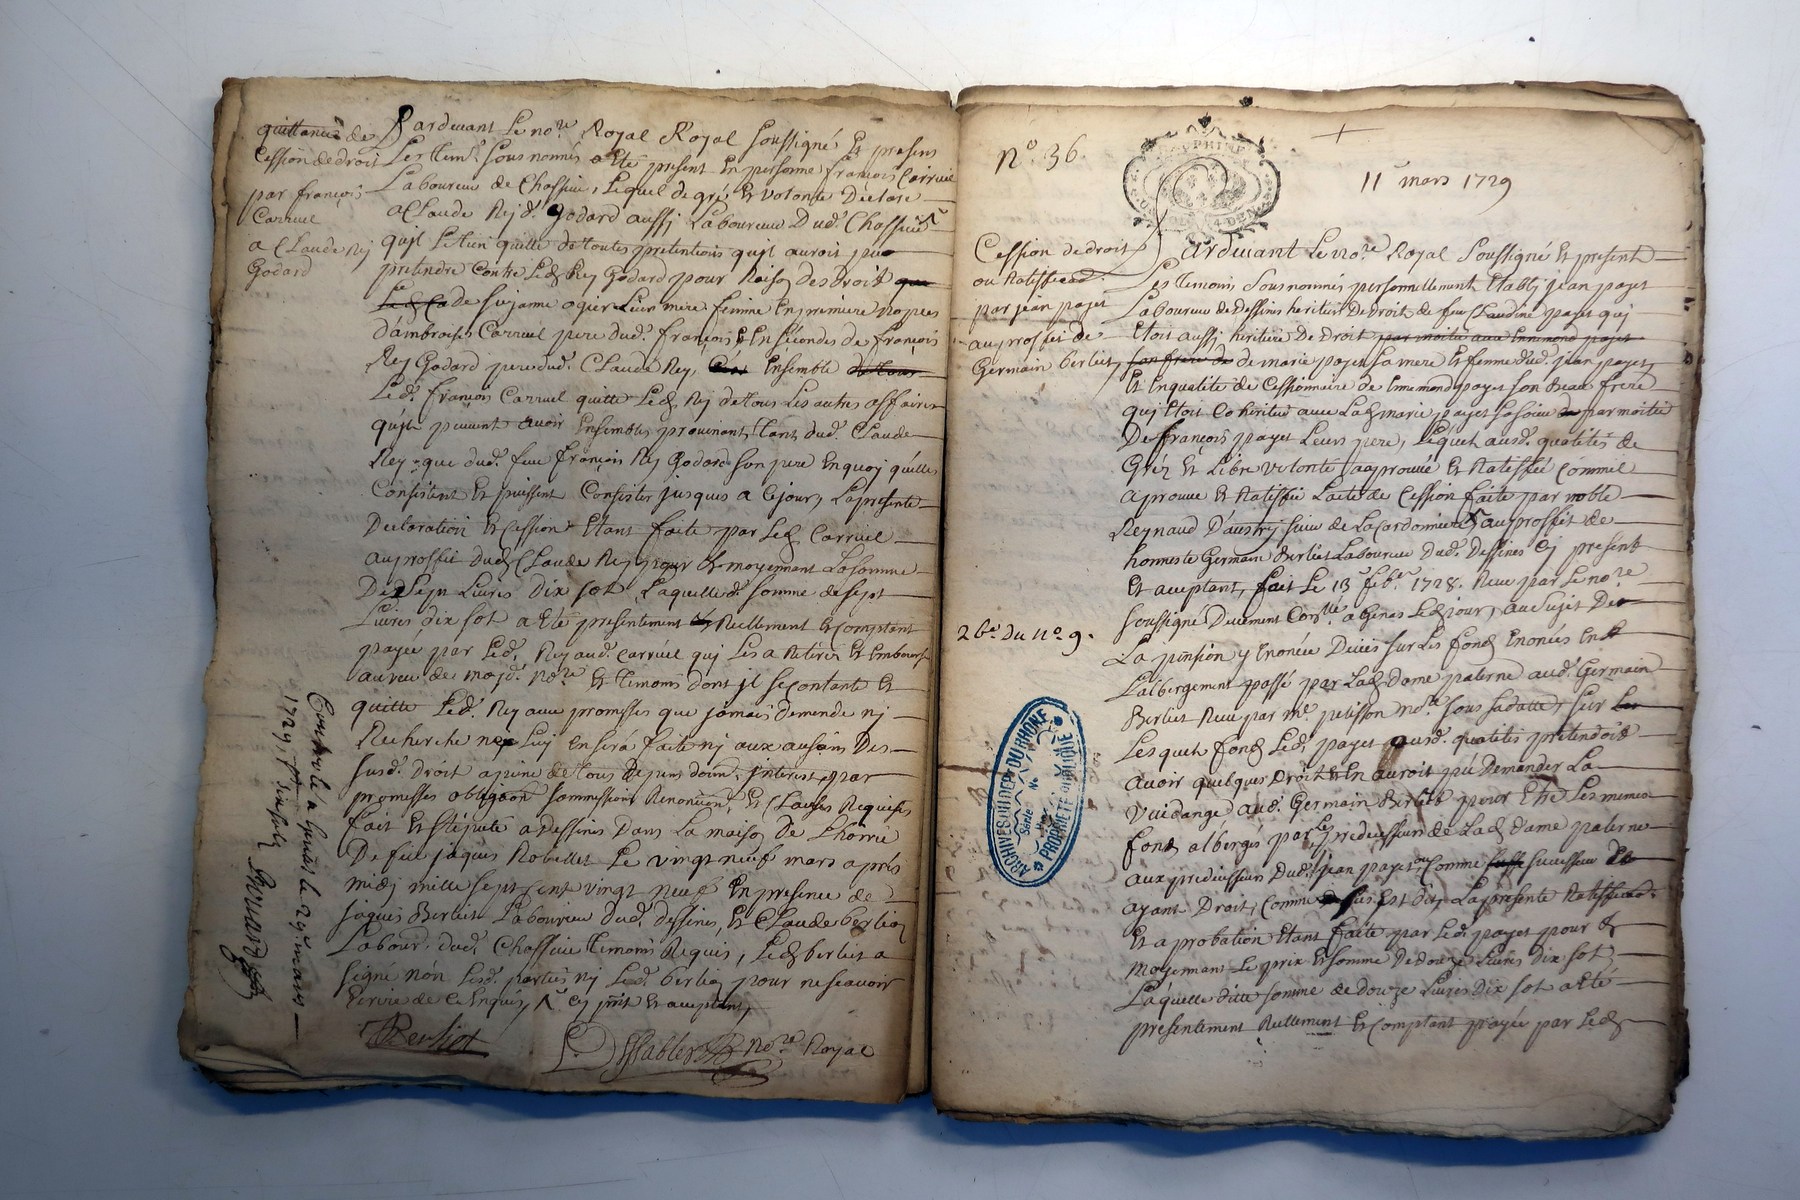 quittance de
Cession de droit
par françois
Carruel
a Claude Rej
Godard
Pardevant Le no.re Royal Royal soussigné Et presens
Les Tem.s sousnomés a Eté present En personne francois Carruel
Laboureur de Chassieu, Lequel de gré Et volonté Declare
a Claude Rej d. Godard aussj Laboureur Dud. Chassieu
qujl Le tien quitte de toutes pretentions qujl auroit peu
pretendre Contre Led. Rej Godard pour Raison des droit
de Suzanne ogier Leur mere femme En premiere nopces
d'ambroises Carruel pere dud. françois & En sécondes de françois
Rej Godard pere dud. Claude Rej, Ensemble
Led. francois Carruel quitte Led. Rej de tous Les autres affaires
qu'jls peuvent avoir Ensembles provenant, tant dud. Claude
Rej que dud. feu françois Rej Godard son pere En quoj qu'elles
Consistent Et puissent Consister jusques a Cejour, La presente
Declaration Et Cession Etant faite par Led. Carruel
au proffit dud. Claude Rej pour & moyennant La somme
De Sept Livres Dix sot, Laquelle d. somme de sept
Livres dix sot a Eté presentement Reellement Et Comptant
payée par Led. Rej aud. Carruel qui Les a Retirés Et Embours
au veu de moyd. No.re Et Temoins dont jl se contante Et
quitte Led. Rej avec promesses que jamais demende nj
Recherche ne Luj En será faite nj aux ausains Des
susd. Droit a peine de tous depens dom. interest par
promesses obligaon sommissions Renoncions, Et Clauses Requises
fait Et stépulé a Dessines Dans La maison De Lhoirie
De feu jaques Robellet Le vingt neuf mars aprés
midj mille sept Cent vingt neuf En presence de
jaques Berliet Laboureur dud. Dessines, Et Claude berlion
Labour. dud. Chassieu temoins Requis, Led. berliet a
signé nón Lesd. parties nj Led. berlion pour ne scavoir
Ecrire de Ce Enquis, Cy pnt Et acceptant
JBerliet
Dessables No.re Royal
Controllé a le 29e mars
1729
N.o 36.
DAUPHINE
11 mars 1729
Cession de droit
ou Ratifficaon
par jean payet
au proffit de
Germain berliet
2 b.e du N.o 9.
Pardevant Le No.re Royal Soussigné Et present
Les Temoins Sousnomés personnellement Etablj jean payet
Laboureur de Dessines heritier De Droit de feu Claudine payet qui
Etoit aussi heritiere De Droit par moitié avec Ennemond payet
son frere de de marie payet Sa mere Et femme dud. jean payet,
Et En qualité de Cessionnaire de Ennemond payet son Beau frere
quj Etoit Coheritier avec Lad. marie payet sa soeur par moitié
De françois payet Leurs pere, Lequel ausd. qualités de
Gréz Et Libre volonté a aprouvé Et Ratiffié Comme il
aprouve Et Ratiffie Lacte de Cession faite par noble
Reynaud D'austrj sieur de La Cardonniere au proffit de
honneste Germain Berliet Laboureur dud. Dessines Cj present
Et acceptant, fait Le 13 feb.er 1728. Receu par Le no.re
soussigné Deuement Con.llé a Genas Led. jour, au Sujet De
La pension y Enoncée Deües sur Les fond Enoncés En
Lalbergement passé par Lad. Dame paterne aud. Germain
Berliet Receu par M.e petisson no.re sous sa datte, sur
Lesquels fond Led. payet ausd. qualités prétendoit
avoir quelques Droit & En auroit peu Demander La
Vuidange aud. Germain Berliet pour Etre Les memes
fond albergés par Les predecesseurs de Lad. Dame paterne
aux predecesseurs Dud. jean payet, ou Comme successeur
ayant Droit, Comme Est dit, La presente Ratifficaon
Et aprobation Etant faite par Led. payet pour &
Moyennant Le prix Et somme De douze Livres dix sot,
Laquelle ditte somme de douze Livres dix sot a Eté
presentement Reellement Et Comptant payée par Led.
ARCHIVES DU DEP.T DU RHONE
Série
No
PROPRIETE PUBLIQUE